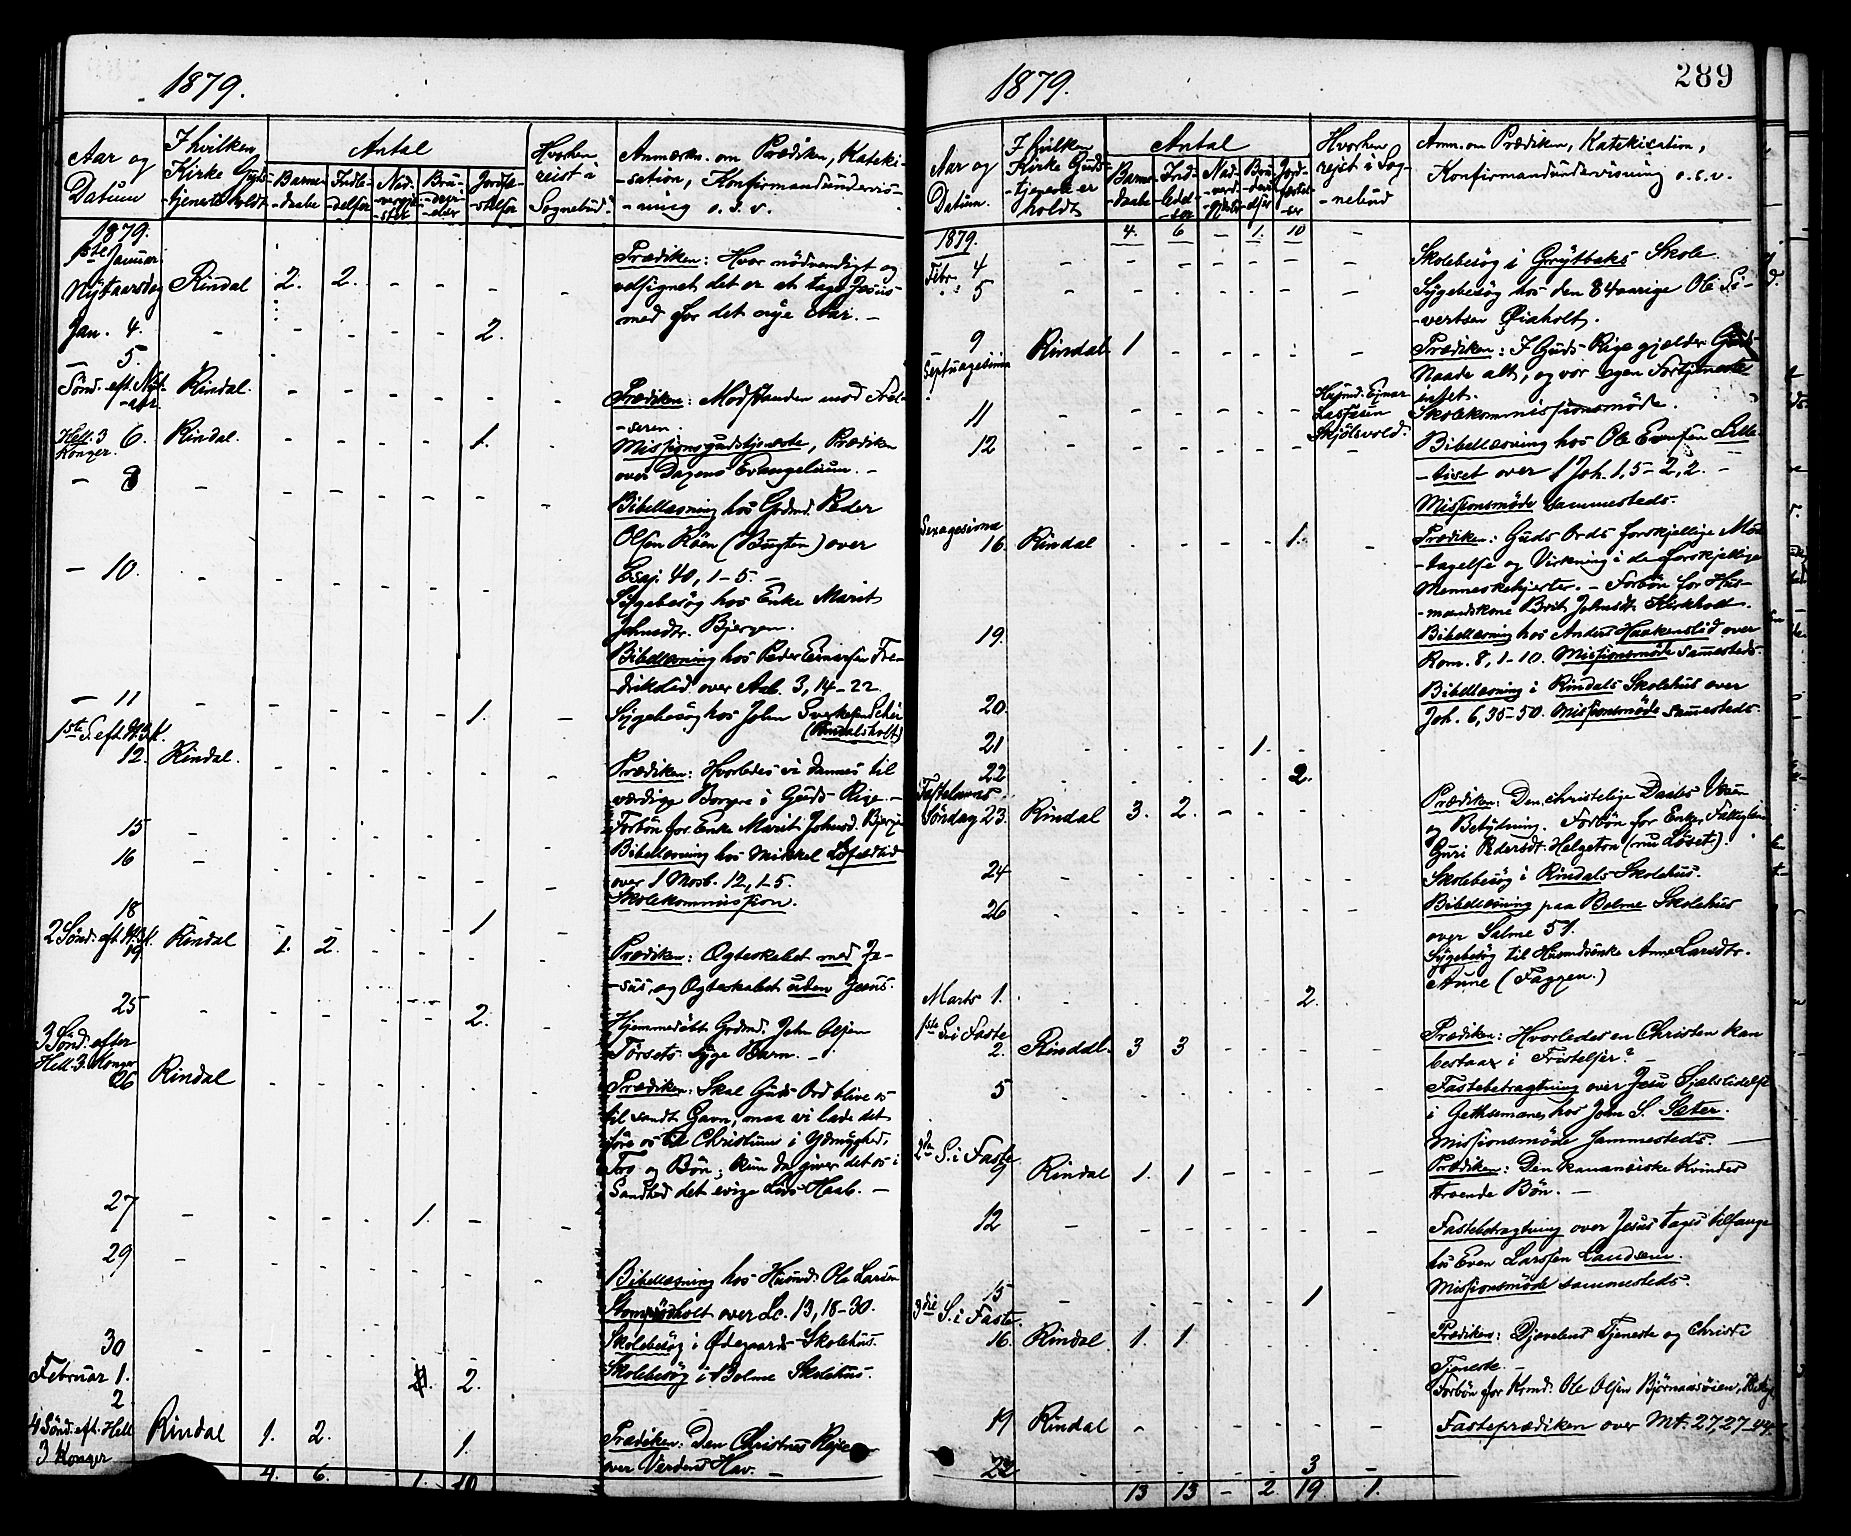 1879.
Aar og Datum
I hvilken Kirke Gudstjeneste holdt
Antal
Barnedaabe
Indledelser
Brudevielser
Jordfæstelser
Hvorhen reist i Sognebud
Anmærkn. om Prædiken, Kateki-
-sation, Konfirmandundervis-
-ning o.s.v.
1879.
1ste Januar
Nytaarsdag Rindal 2. 2. - - - -
Prædiken: Hvor nødvendigt og
velsignet det er at tage Jesus
med for det nye Aar. -
Jan. 4. - - - - - 2.
- 5.
Sønd. eft. Nyt-
-aar. Rindal.
Prædiken: Modstanden mod Frel-
-seren.
Hell. 3 Konger. 6. Rindal. - - - - 1. -
Missionsgudstjeneste, Prædiken
over Dagens Evangelium. -
- 8 - - - - - - -
Bibellæsning hos Grdmd. Peder
Olsen Röen (Bugten) over
Esaj. 40, 1-5. -
- 10. - - - - - - -
Sygebesøg hos Enke Marit
Johnsdtr. Bjergen.
Bibellæsning hos Peder Einarsen Fre-
-drikslid over Aab. 3, 14-22.
- 11 - - - - - 1. -
Sygebesøg hos John
1ste S. eft. H. 3 K.
12. Rindal. - - - - - -
Prædiken: Hvorledes vi dannes til
værdige Borgere i Guds Rige. -
Forbön for Enke Marit Johnsd. Bjergen
15 - - - - - - -
Bibellæsning hos Mikkel
over 1 Mosb. 12, 1-5.
16 - - - - - - -
Skolekommission.
18 - - - - 1
2 Sönd. eft. H. 3 K.
19. Rindal 1. 2. - - - -
Prædiken: Ægteskabet med Je-
-sus, og Ægteskabet uden Jesus.
25 - - - - - 2. -
Hjemmedöbt Grdmd. John Olsen
Törsets syge Barn. -
3 Sönd. efter
Hell. 3. Konger
26 Rindal - - - - - -
Prædiken: Skal Guds Ord blive os
til sandt Gavn, maa vi lade det
före os til Christum i Ydmyghed,
Tro og Bön; kun da giver det os i
Sandhed det evige Livs Haab. -
27 - - - - 1. - -
29 - - - - - - -
Bibellæsning hos Husmd. Ole Larsen
over Lc. 13, 18-30.
30 - - - - - -
Skolebesøg i Ødegaards Skolehus.
Februar 1. 2.
Skolebesøg i Bolme Skolehus.
2
4 Sönd. eft. Hell
3 Konger Rindal 1. 2. 1.
Prædiken: Den Christnes Rejse
over Verdens Hav. -
4. 6. 1. 10
1879.
289
Aar og Datum.
I hvilken Kirke Gudstjeneste er holdt
Antal
Barnedaabe
Indledelser
Brudevielser
Jordfæstelser
Hvorhen rejst i Sognebud
Anm. om Prædiken, Katekisation,
Konfirmandundervisning o.s.v.
1879. 4. 6 - 1. 10 -
Febr. 4 - - - - - - -
Skolebesøg i Grytbaks Skole.
5 - - - - - - -
Sygebesøg hos den 84aarige Ole Si-
-vertsen Øiaholt.
9
Septuagesima Rindal 1 - - - - -
Prædiken: I Guds Rige gjælder Guds
Naade alt, og vor egen Fortjeneste
intet.
11 - - - - - -
Husmd. Ejnar
Larssen
Skjölsvold.
Skolekommissionsmöde.
12 - - - - - - -
Bibellæsning hos Ole Evensen Lille-
over 1 Joh. 1, 5-2, 2. -
Missionsmöde sammesteds.
Sexagesima
16. Rindal - - - - 1. -
Prædiken: Guds Ords forskjellige Mod-
-tagelse og Virkning i de forskjellige
Menneskehjerter. - Forbön for Hus-
-mandskone Brit Johnsdt.
19.
Bibellæsning hos Anders Haakenslid over
Rom. 8, 1-10. Missionsmöde sammesteds.
20.
Bibellæsning i Rindals Skolehus over
Joh. 6, 35-50. Missionsmöde sammesteds.
21 - - - - 1. - -
22 - - - - - 2. -
Fastelavns
Söndag 23. Rindal 3. 2. - - - -
Prædiken: Den christelige Daabs Værd
og Betydning. Forbön for Enke
Guri Pedersdt. Helgeton (nu Löset).
24 - - - - - - -
Skolebesøg i Rindals Skolehus.
26 - - - - - - -
Bibellæsning paa Bolme Skolehus
over Salme 51.
Sygebesøg til Husmdsenke Anne Larsdtr.
Aune (Faggen.)
Marts 1. - - - - - 2. -
1ste S. i Faste
2. Rindal. 3 3 - - - -
Prædiken: Hvorledes en Christen kan
bestaa i Fristelser? -
5 - - - - - - -
Fastebetragtning over Jesu Sjælslidelse
i Gethsemane, hos John S. Sæter.
Missionsmöde sammesteds. -
2den S. i Faste
9 Rindal 1. 1 - - - -
Prædiken: Den kananæiske Kvindes
troende Bön. -
12 - - - - - - -
Fastebetragtning over Jesus tages tilfange
hos Even Larssen Landsem.
Missionsmöde sammesteds.
15 - - - - - 1 -
3die S. i Faste.
16. Rindal 1. 1 - - - -
Prædiken: Djævelens Tjeneste og Christi
Tjeneste. -
Forbön for Krmd. Ole Olsen
19 Rindal - - - - - -
Fasteprædiken over Mt. 27, 27-44.
22. - - - - - 3 -
13 13 - 2. 19 1.